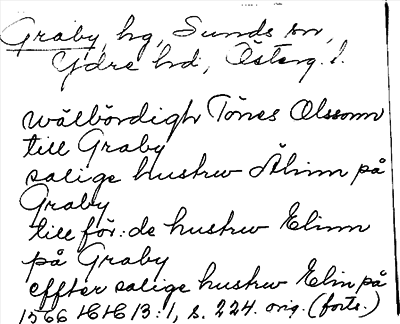 Graby, hg, Sunds sn,
Ydre hd, Österg. l.
wälbördigh Tönes Olssonn
till Graby
salige hustrw Älinn på
Graby
till för: de hustrw Elinn
på Graby
effter salige hustrw Elin på
1566 HH 13:1, s. 224. orig. (forts.)